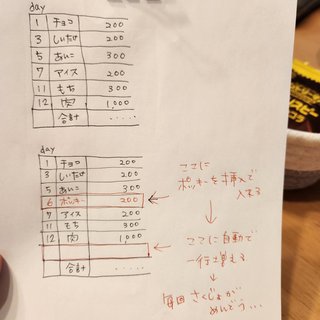 day
1 チョコ 200
3 しいたけ 200
5 あいこ 300
7 アイス 200
11 もち 300
12 肉 1,000
合計 .....
day
1 チョコ 200
3 しいたけ 200
5 あいこ 300
6 ポッキー 200
7 アイス 200
11 もち 300
12 肉 1,000
合計 .....
ここに
ポッキーを挿入で
入れる
ここに自動で
一行増える
毎回 さくじょが
めんどう...